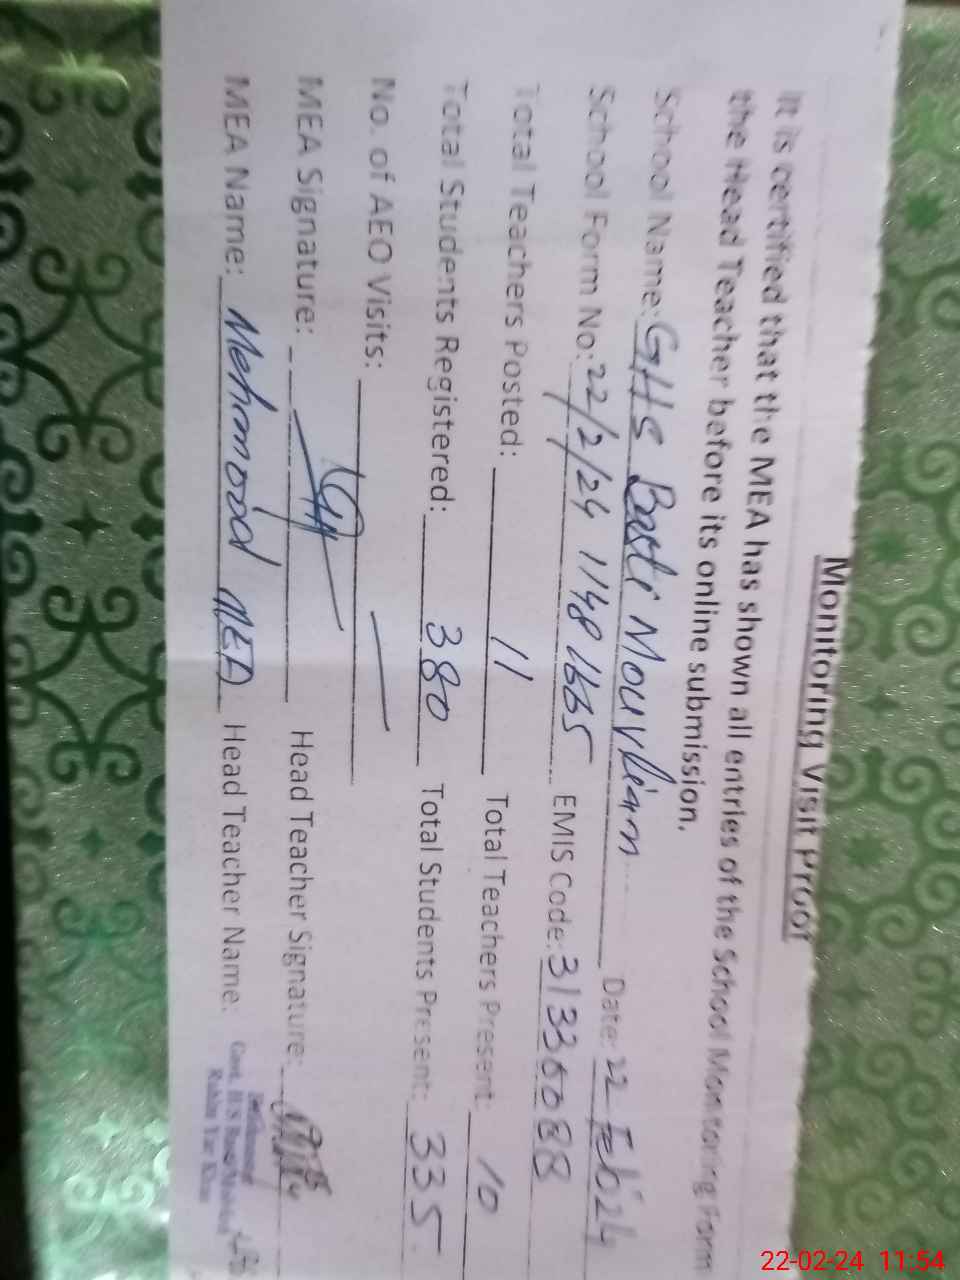 Monitoring Visit Proof
It is certified that the MEA has shown all entries of the School Monitoring Form
the Head Teacher before its online submission.
School Name: GHS Basti Mouvlian Date: 22 Feb 24
School Form No: 22/2/24 1148 1665 EMIS Code: 31330088
Total Teachers Posted: 11 Total Teachers Present: 10
Total Students Registered: 380 Total Students Present: 335
No. of AEO Visits: —
MEA Signature: Head Teacher Signature:
MEA Name: Mehmood Head Teacher Name:
Govt. H/S Basti
Rahim Yar Khan
22-02-24 11:54